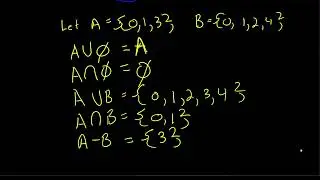 Let A = {0,1,3} B = {0, 1,2,4}
A∪∅ = A
A∩∅ = ∅
A∪B = {0, 1, 2, 3, 4}
A∩B = {0,1}
A-B = {3}